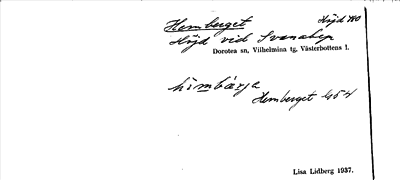 Hemberget Höjd
Höjd vid Svanabyn
Dorotea sn, Vilhelmina tg, Västerbottens l.
hèmbærja
Hemberget
Lisa Lidberg 1937.